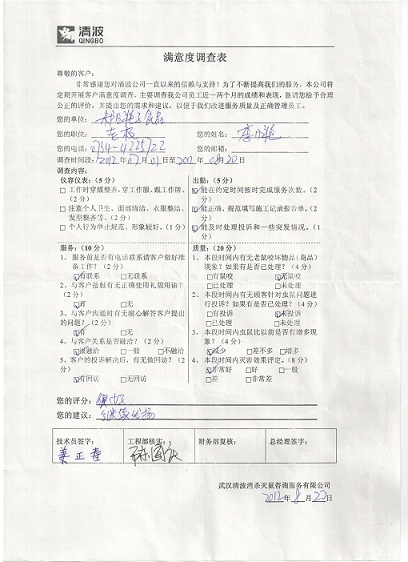 清波
QINGBO
满意度调查表
尊敬的客户：
非常感谢您对清波公司一直以来的信赖与支持！为了不断提高我们的服务，本公司将
定期开展客户满意度调查，主要调查我公司员工近一两个月的成绩和表现，恳请您给予合理
公正的评价，并提出您的需求和建议，以便于我们改进服务质量及正确管理员工。
您的单位：
您的职位： 您的姓名：
您的电话： 您的邮箱：
调查时间段：2012年07月01日至2012年08月20日
调查内容：
仪容仪表：（5分） 出勤：（5分）
□工作时穿戴整齐，穿工作服、戴工作牌。（2分） 能在约定时间按时完成服务次数。（2分）
□注意个人卫生、面部清洁、衣服整洁、发型整齐等。（2分） 能正确、规范填写施工记录报告单。（2分）
□个人行为举止规范、形象较好。（1分） 能及时处理投诉和一些突发情况。（1分）
服务：（10分） 质量：（20分）
1、服务前是否有电话联系请客户做好准备工作？（2分） 1、本段时间内有无老鼠咬坏物品（商品）现象？如果有是否已处理？（4分）
有联系 □无联系 □有鼠咬 无鼠咬
□已处理 □未处理
2、与客户接触有无正确使用礼貌用语？（2分） 2、本段时间内有无顾客针对虫鼠问题进行投诉？如果有是否已处理？（4分）
有 □无 □有投诉 未投诉
□已处理 □未处理
3、与客户沟通时有无耐心解答客户提出的问题？（2分） 3、本段时间内虫鼠比以前是否有增多现象？（4分）
有 □无 减少 □差不多 □增多
4、与客户关系是否融洽？（2分） 4、本段时间内灭害效果评定。（8分）
融洽 □一般 □不融洽 非常好 □好 □一般
5、客户的投诉解决后，有无做回访？（2分） □差 □非常差
有回访 □无回访
您的评分：
您的建议：继续发扬
技术员签字： 工程部核实： 财务部复核： 总经理签字：
姜正哲
武汉清波消杀灭鼠咨询服务有限公司
2012年8月20日